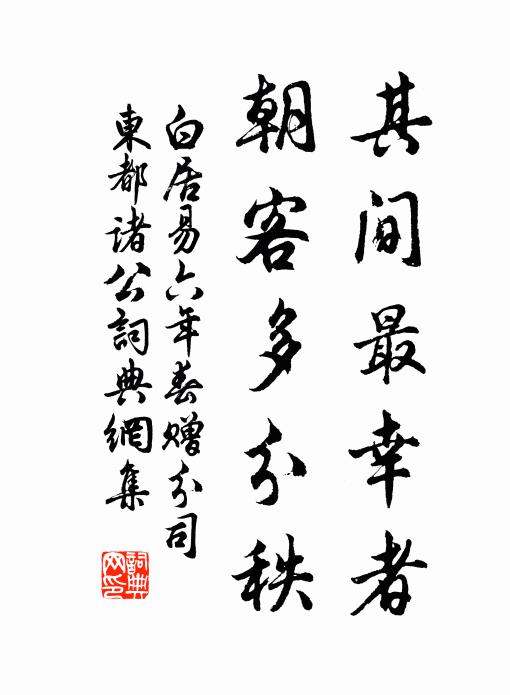 其间最幸者
朝客多分秩
白居易六年春赠分司
東都诸公詞典網集
詞典
网印